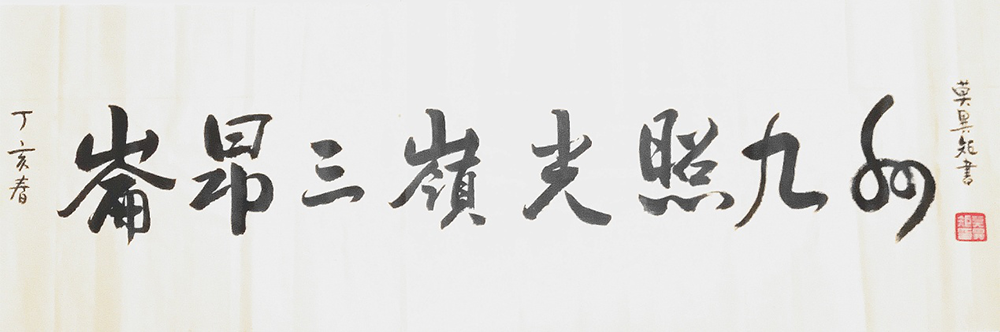 丁亥春
崙昂三嶺光照九州
莫異矩書